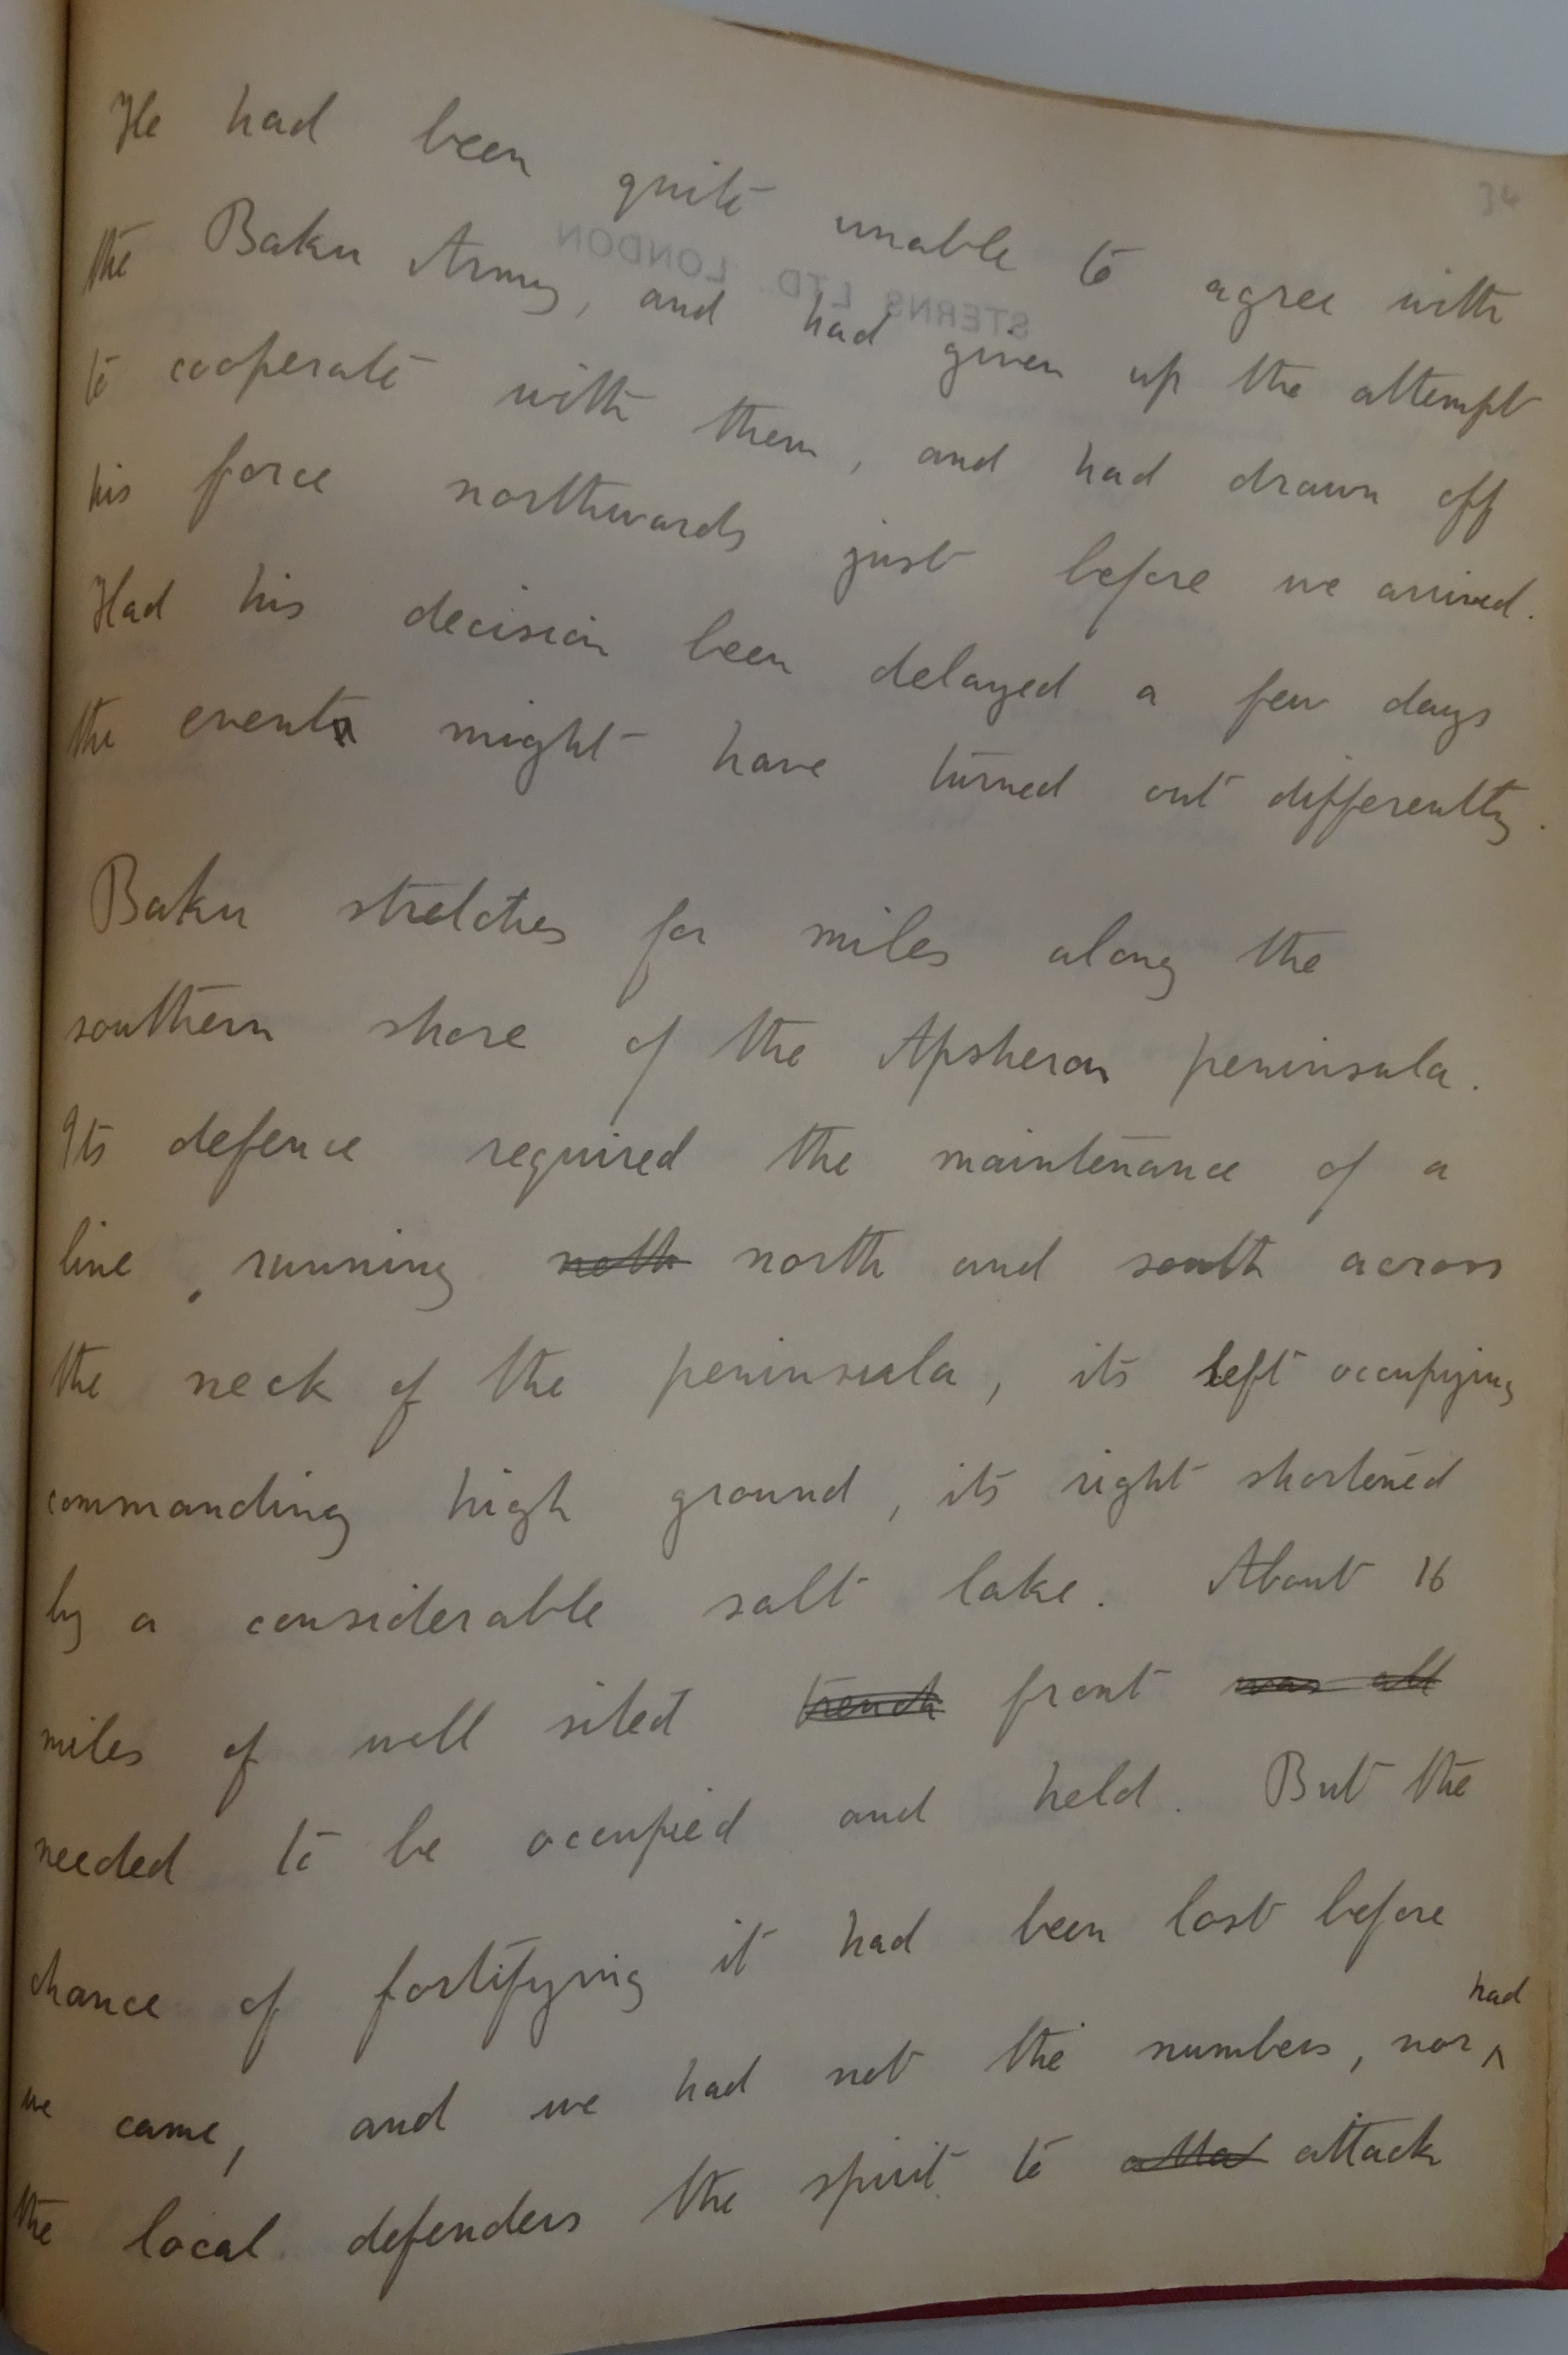 34
He had been quite unable to agree with
the Baku Army, and had given up the attempt
to cooperate with them, and had drawn off
his force northwards just before we arrived.
Had his decision been delayed a few days
the events might have turned out differently.
Baku stretches for miles along the
southern shore of the Apsheron peninsula.
Its defence required the maintenance of a
line, running noth north and south across
the neck of the peninsula, its left occupying
commanding high ground, its right shortened
by a considerable salt lake. About 16
miles of well sited trench front was all
needed to be occupied and held. But the
chance of fortifying it had been lost before
we came, and we had not the numbers, nor had
the local defenders the spirit to attac attack
STERNS LTD. LONDON